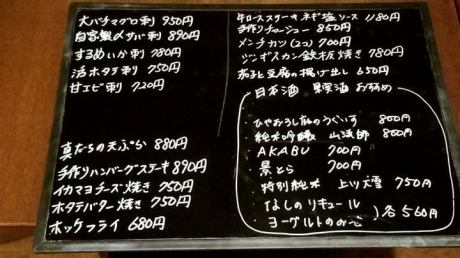 大バチマグロ刺 950円
自家製〆サバ刺 890円
するめいか刺 780円
活ホタテ刺 750円
甘エビ刺 720円
真たちの天ぷら 880円
手作りハンバーグステーキ 890円
イカマヨチーズ焼き 750円
ホタテバター焼き 750円
ホッケフライ 680円
牛ロースステーキ ネギ塩ソース 1180円
手作りチャーシュー 850円
メンチカツ(2コ) 700円
ジンギスカン鉄板焼き 780円
茄子と豆腐の揚げ出し 650円
日本酒 果実酒 おすすめ
ひやおろし 殿のうぐいす 800円
純米吟醸 山法師 800円
AKABU 700円
景とら 700円
特別純米 上川大雪 750円
なしのリキュール
ヨーグルトのお酒 }各560円